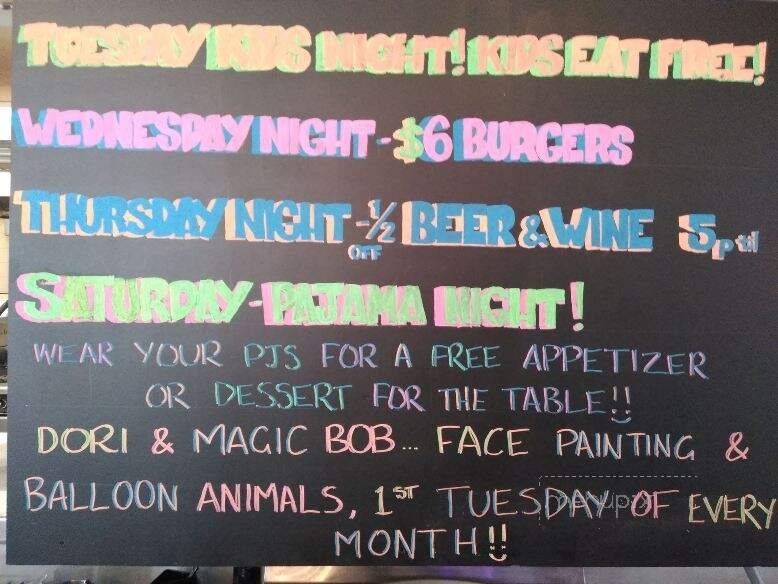 TUESDAY KIDS NIGHT! KIDS EAT FREE!
WEDNESDAY NIGHT - $6 BURGERS
THURSDAY NIGHT - 1/2 OFF BEER & WINE 5p til
SATURDAY - PAJAMA NIGHT!
WEAR YOUR PJS FOR A FREE APPETIZER
OR DESSERT FOR THE TABLE!!
DORI & MAGIC BOB... FACE PAINTING &
BALLOON ANIMALS, 1ST TUESDAY OF EVERY
MONTH!!
menupix